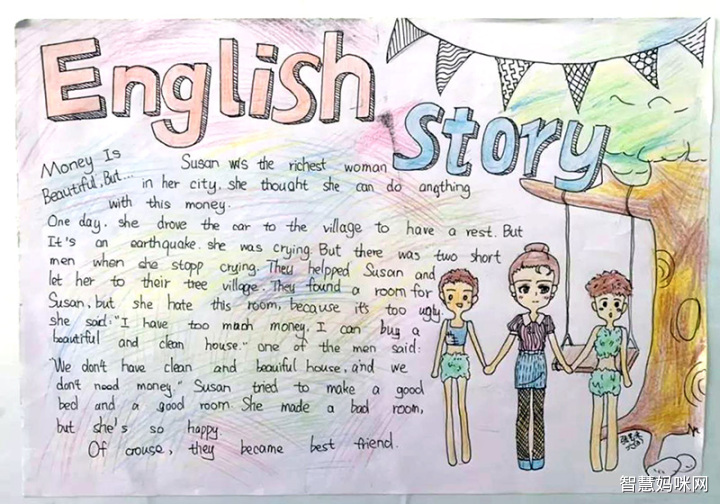 English
Story
Money Is
Beautiful, But...
Susan was the richest woman
in her city. she thought she can do angthing
with this money.
One day. she drove the car to the village to have a rest. But
It's an earthquake. she was crying. But there was two short
men when she stopp crying. They helpped Susan and
let her to their tree village. They found a room for
Susan, but she hate this room, because it's too ugly.
she said: "I have too much money, I can buy a
beautiful and clean house." one of the men said:
"We don't have clean and beauiful house, and we
don't nood money." Susan tried to make a good
bed and a good room. She made a bad room,
but she's so happy
Of crouse, they became best friend.
智慧妈咪网